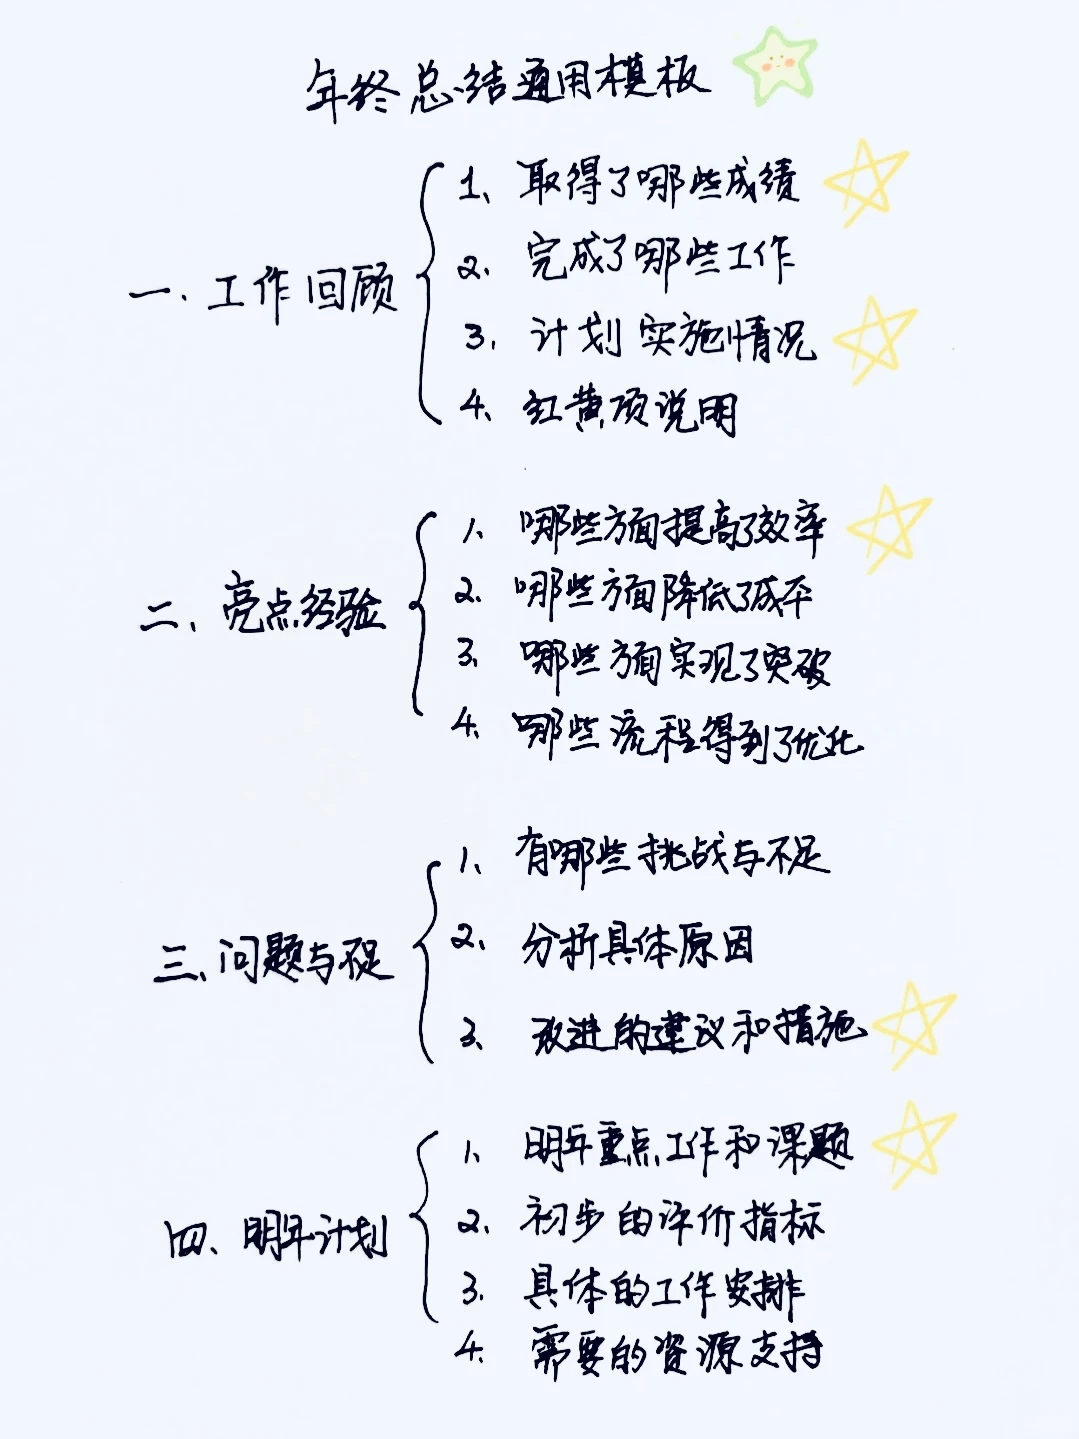 年终总结通用模板
一、工作回顾
1、取得了哪些成绩
2、完成了哪些工作
3、计划实施情况
4、红黄项说明
二、亮点经验
1、哪些方面提高了效率
2、哪些方面降低了成本
3、哪些方面实现了突破
4、哪些流程得到了优化
三、问题与不足
1、有哪些挑战与不足
2、分析具体原因
3、改进的建议和措施
四、明年计划
1、明年重点工作和课题
2、初步的评价指标
3、具体的工作安排
4、需要的资源支持